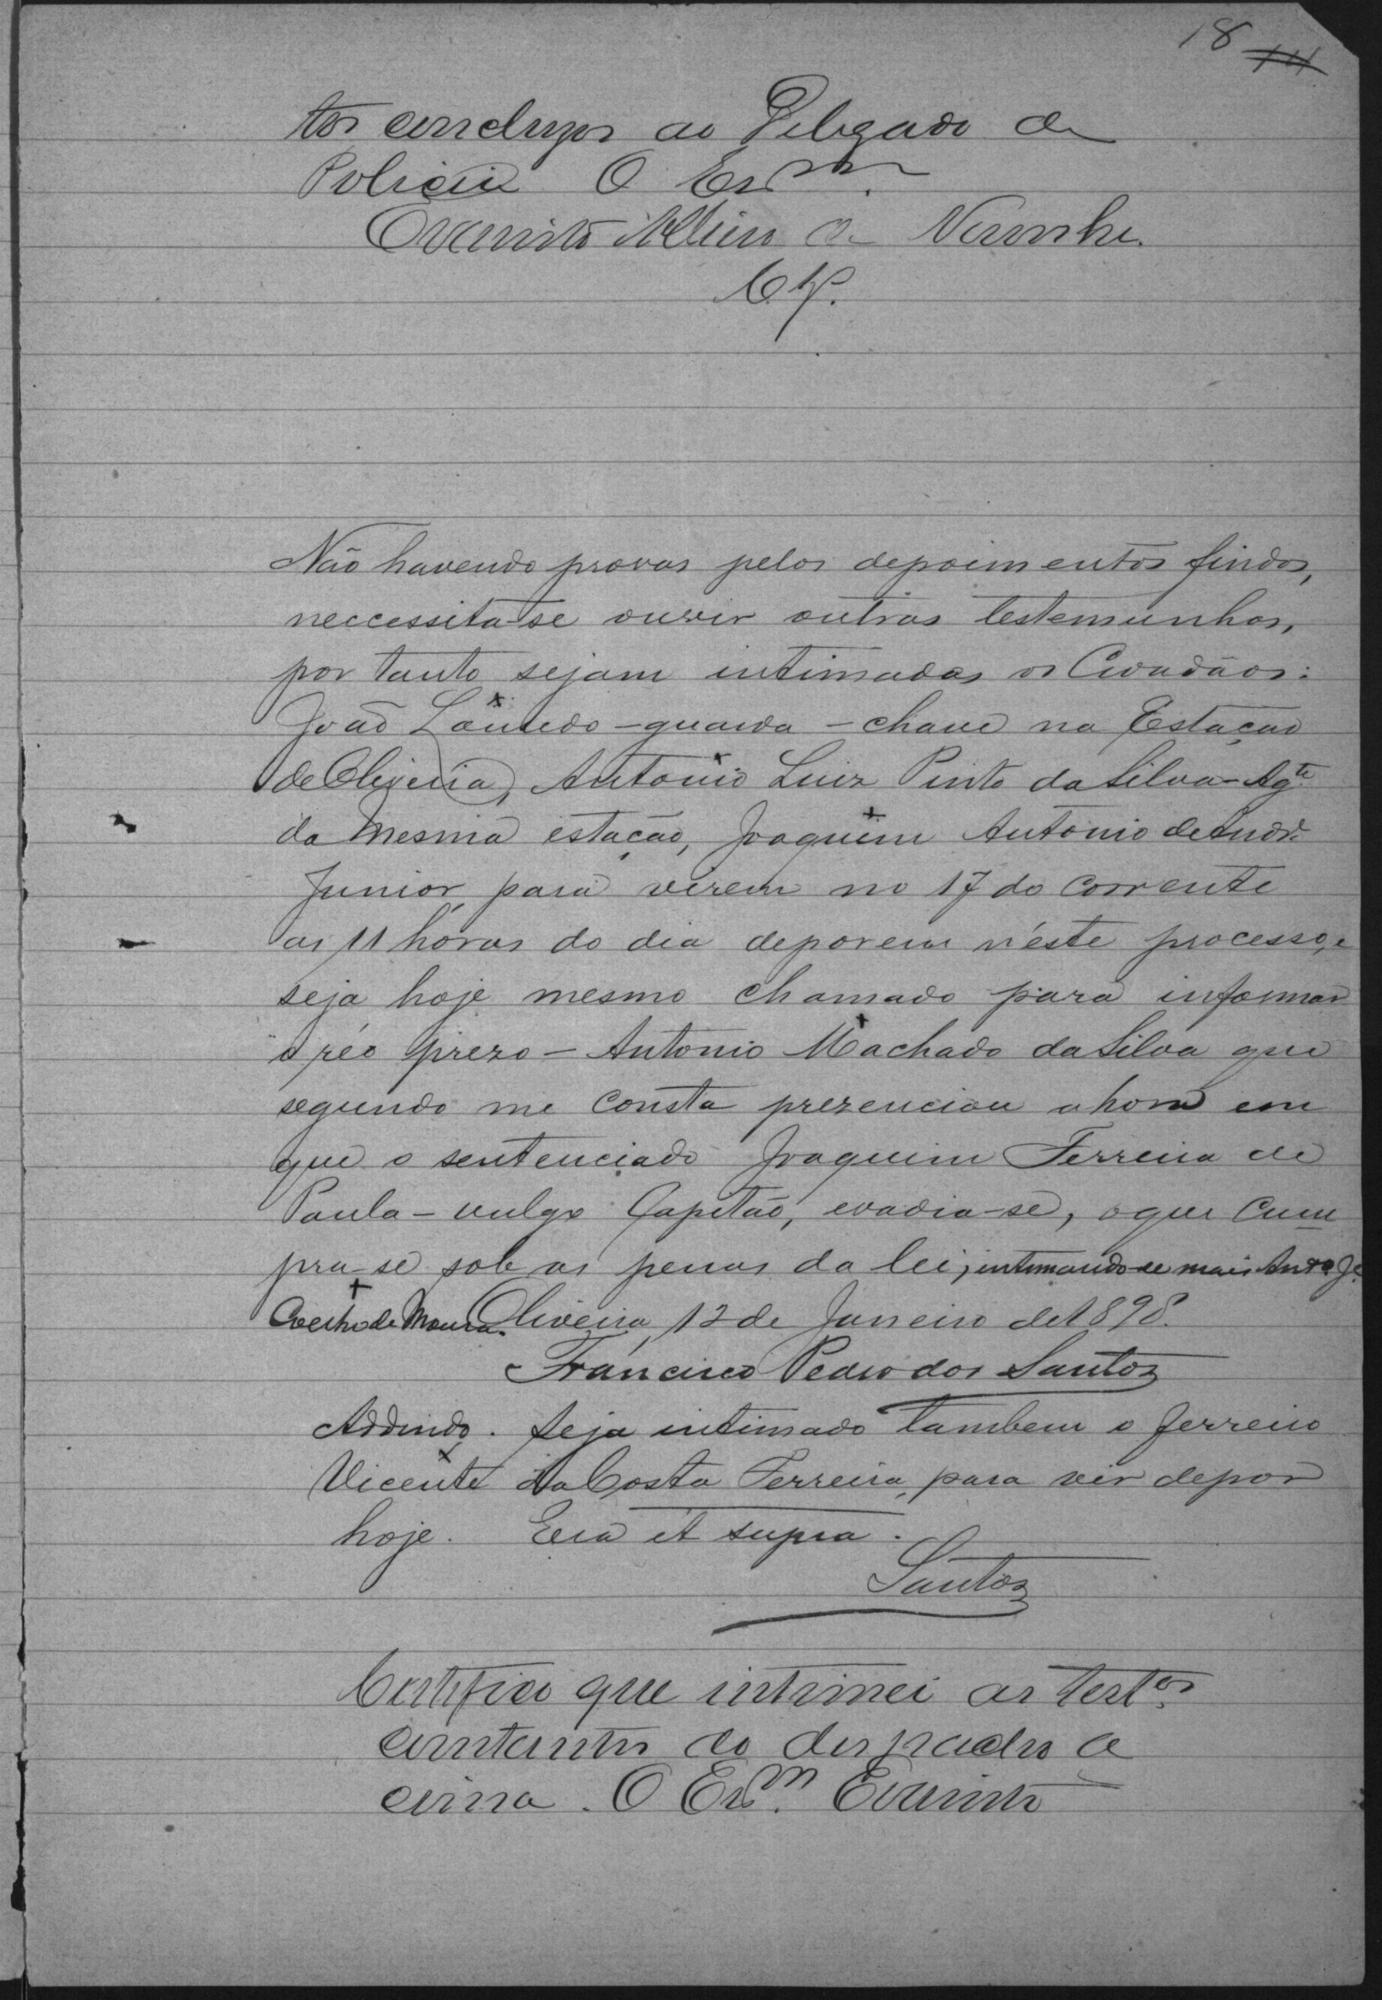 18 14
tos conclusos ao Delegado de
Policia O Esc.m
Evaristo de
Clz.
Não havendo provas pelos depoimentos findos,
neccessita-se ouvir outras testemunhas,
por tanto sejam intimadas os Cidadãos:
João Louredo - guarda - chave na Estação
de Oliveira, Antonio Luiz Pinto da Silva - Agte
da mesma estação, Joaquim Antonio de Andre
Junior, para virem no 17 do corrente
as 11 horas do dia deporem n'este processo, e
seja hoje mesmo chamado para informar
o réo prezo - Antonio Machado da Silva que
segundo me consta prezenciou a hora em
que o sentenciado Joaquim Ferreira de
Paula - vulgo Capitão, evadia-se, o que cum
pra-se sob as penas da lei, intimando-se mais Anto Je
Coelho de Moura. Oliveira, 12 de Janeiro de 1898.
Francisco Pedro dos Santos
Addindo. Seja intimado tambem o ferreiro
Vicente da Costa Ferreira, para vir depor
hoje. Era et supra.
Santos
Certifico que intimei as testas
constantes do despacho a
cima. O Escm. Evaristo